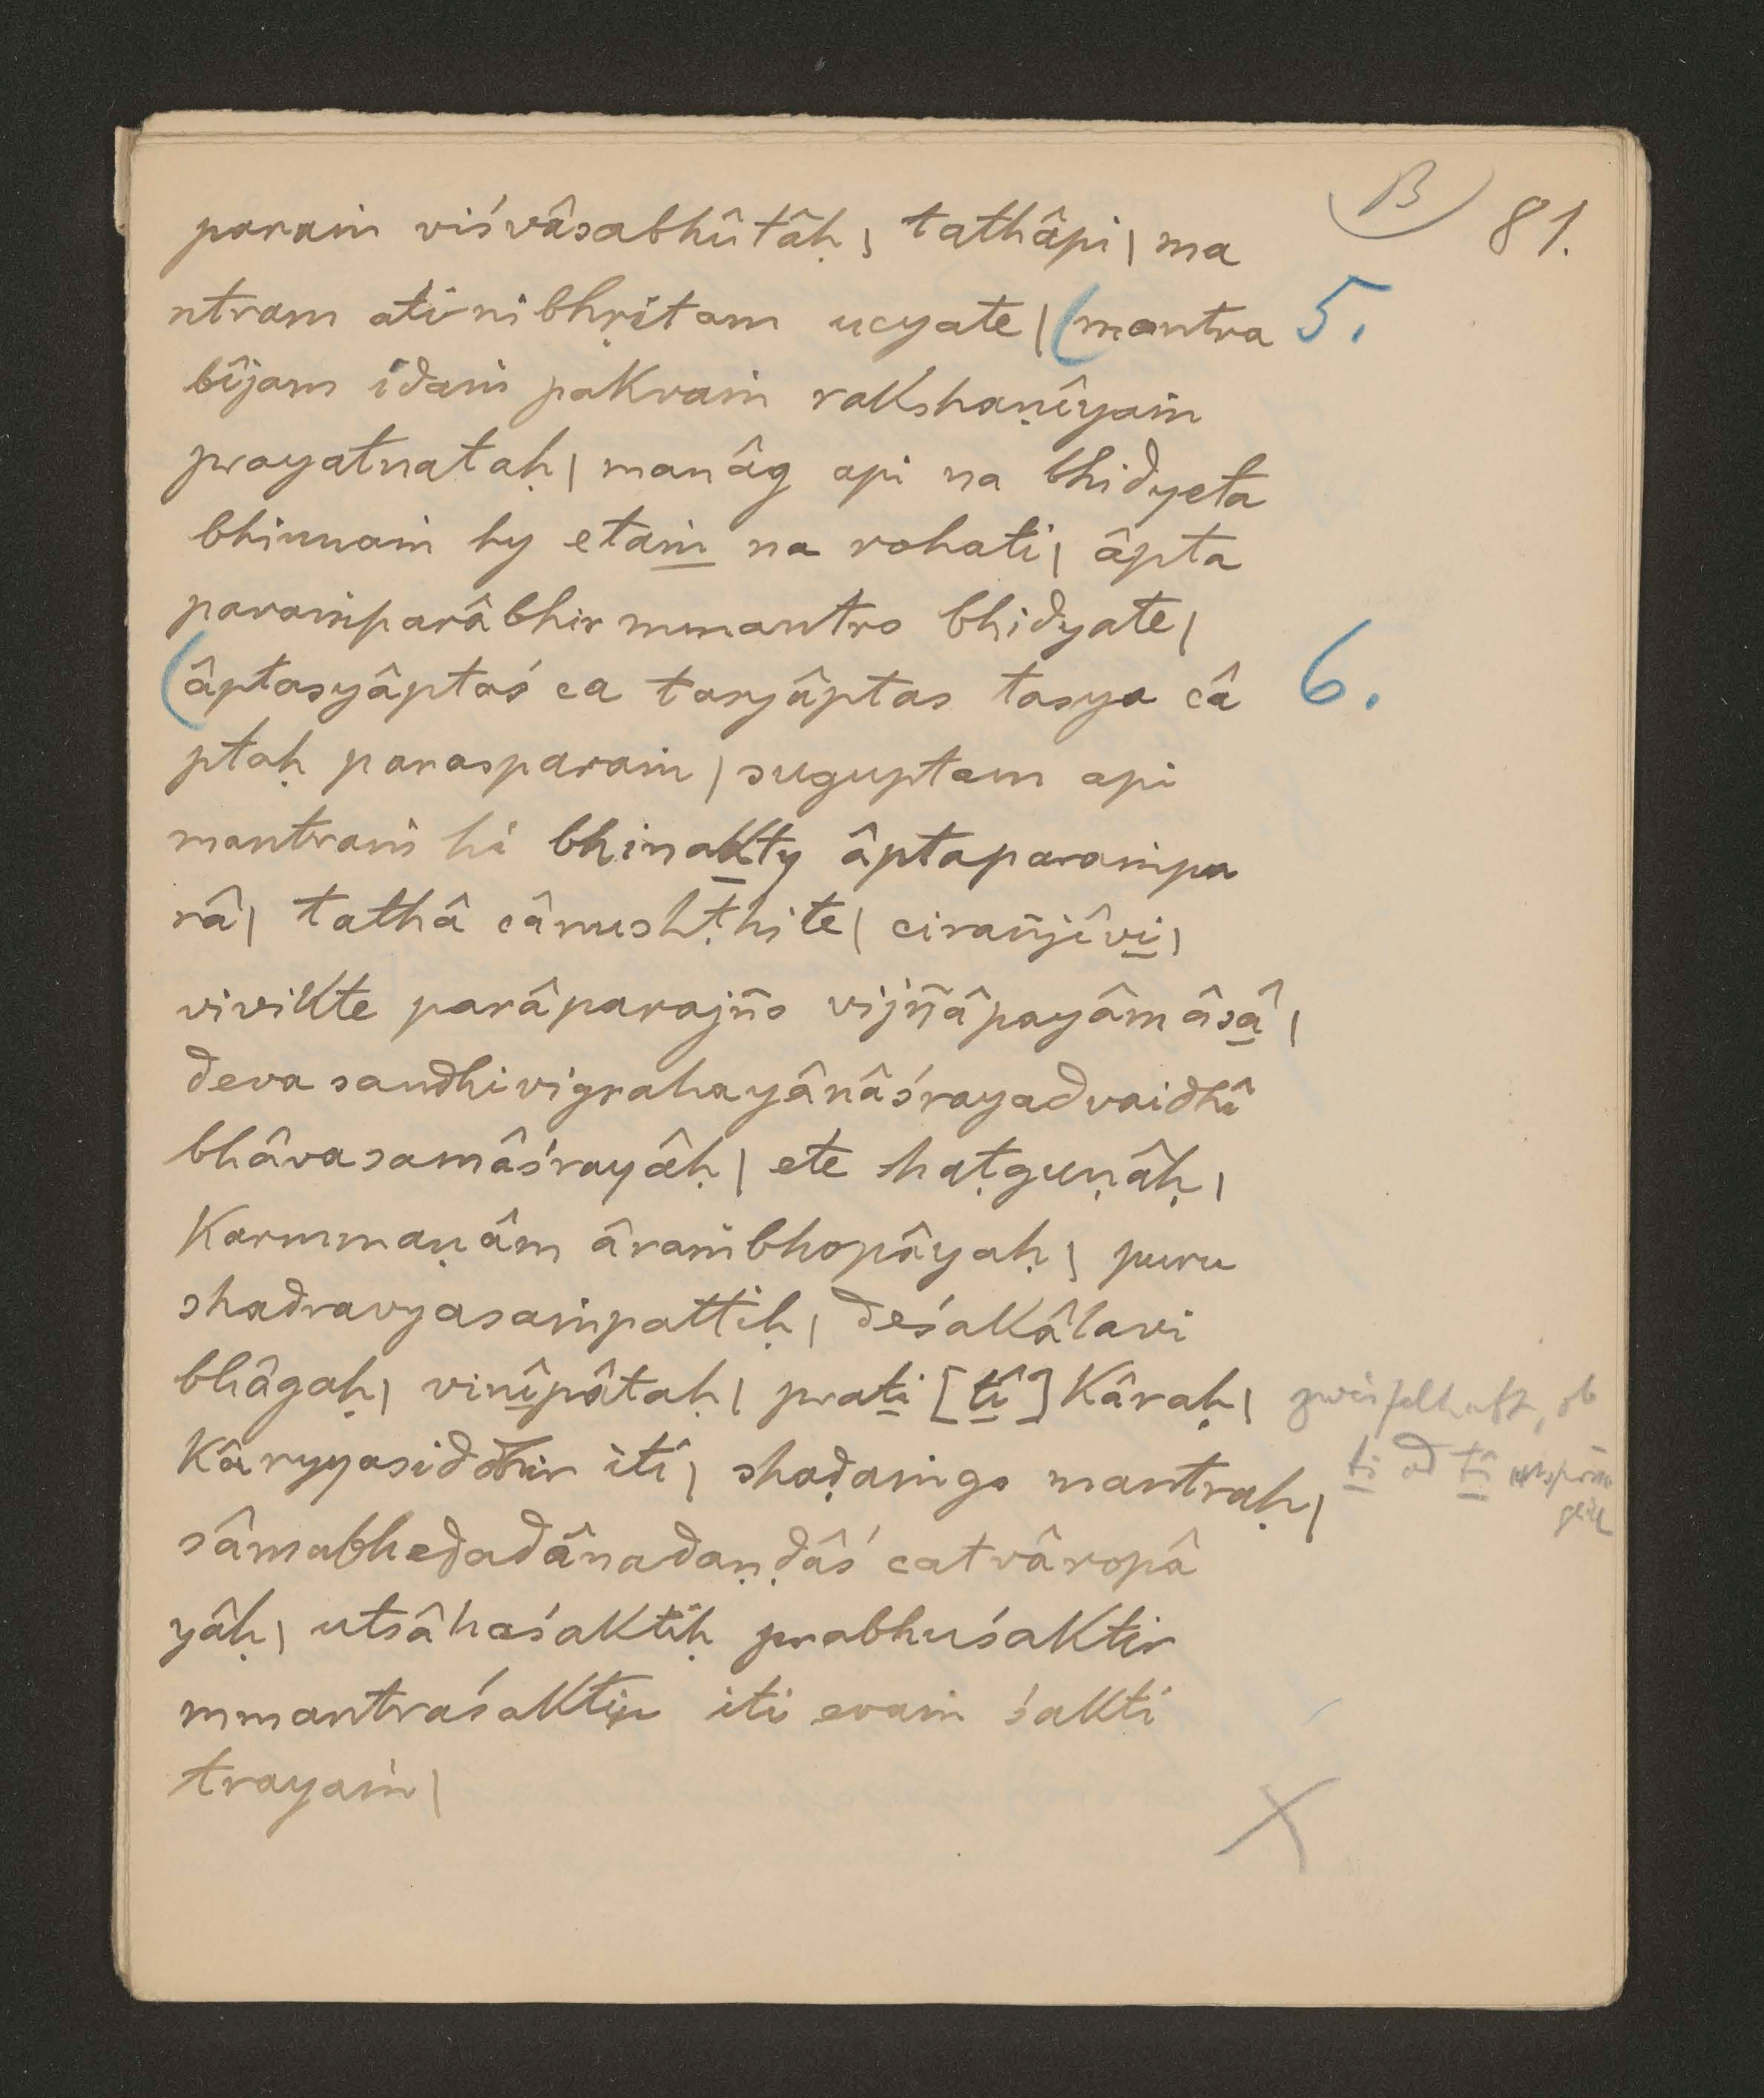 B 81.
paraṁ viśvâsabhûtâḥ | tathâpi | ma
ntram atinibhṛitam ucyate | (mantra 5.
bîjam idaṁ pakvaṁ rakshaṇîyaṁ
prayatnataḥ | manâg api na bhidyeta
bhinnaṁ hy etaṁ na rohati | âpta
paraṁparâbhir mmantro bhidyate |
(âptasyâptaś ca tasyâptas tasya câ 6.
ptaḥ parasparaṁ | suguptam api
mantraṁ hi bhinakty âptaparaṁpa
râ | tathâ cânushṭhite | cirañjîvi |
vivikte parâparajño vijñâpayâmâsâ |
deva sandhivigrahayânâśrayadvaidhî
bhâvasamâśrayâḥ | ete shaṭguṇâḥ |
karmmaṇâm âraṁbhopâyaḥ | puru
shadravyasaṁpattiḥ | deśakâlavi
bhâgaḥ | vinîpâtaḥ | prati [tî] kâraḥ | zweifelhaft, ob
kâryyasiddhir iti | shaḍaṁgo mantraḥ | ti od tî ursprün
glich
sâmabhedadânadaṇḍâś catvâropâ
yâḥ | utsâhaśaktiḥ prabhuśaktir
mmantraśaktir iti evaṁ śakti
trayaṁ |